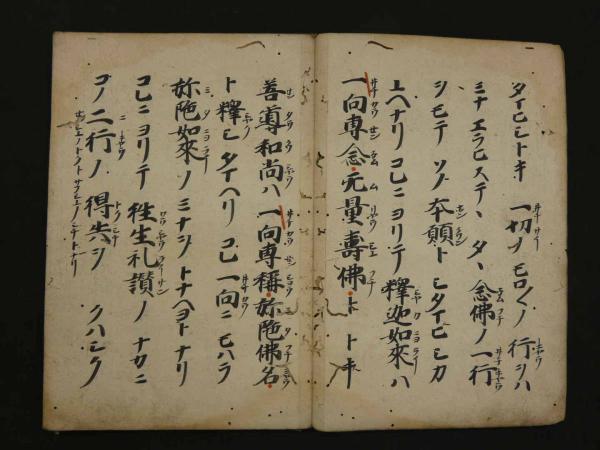 タイヒシトキ 一切ノモロ〱ノ行ヲハ
ミナエラヒステヽタヽ念佛ノ一行
ヲモテソノ本願トシタマヒシカ
ユヘナリコレニヨリテ釋迦如來ハ
一向専念无量壽佛トトキ
善導和尚ハ一向専稱弥陁佛名
ト釋シタマヘリコレ一向ニモハラ
弥陁如來ノミナヲトナヘヨトナリ
コレニヨリテ往生礼讃ノナカニ
コノ二行ノ得失ヲクハシク